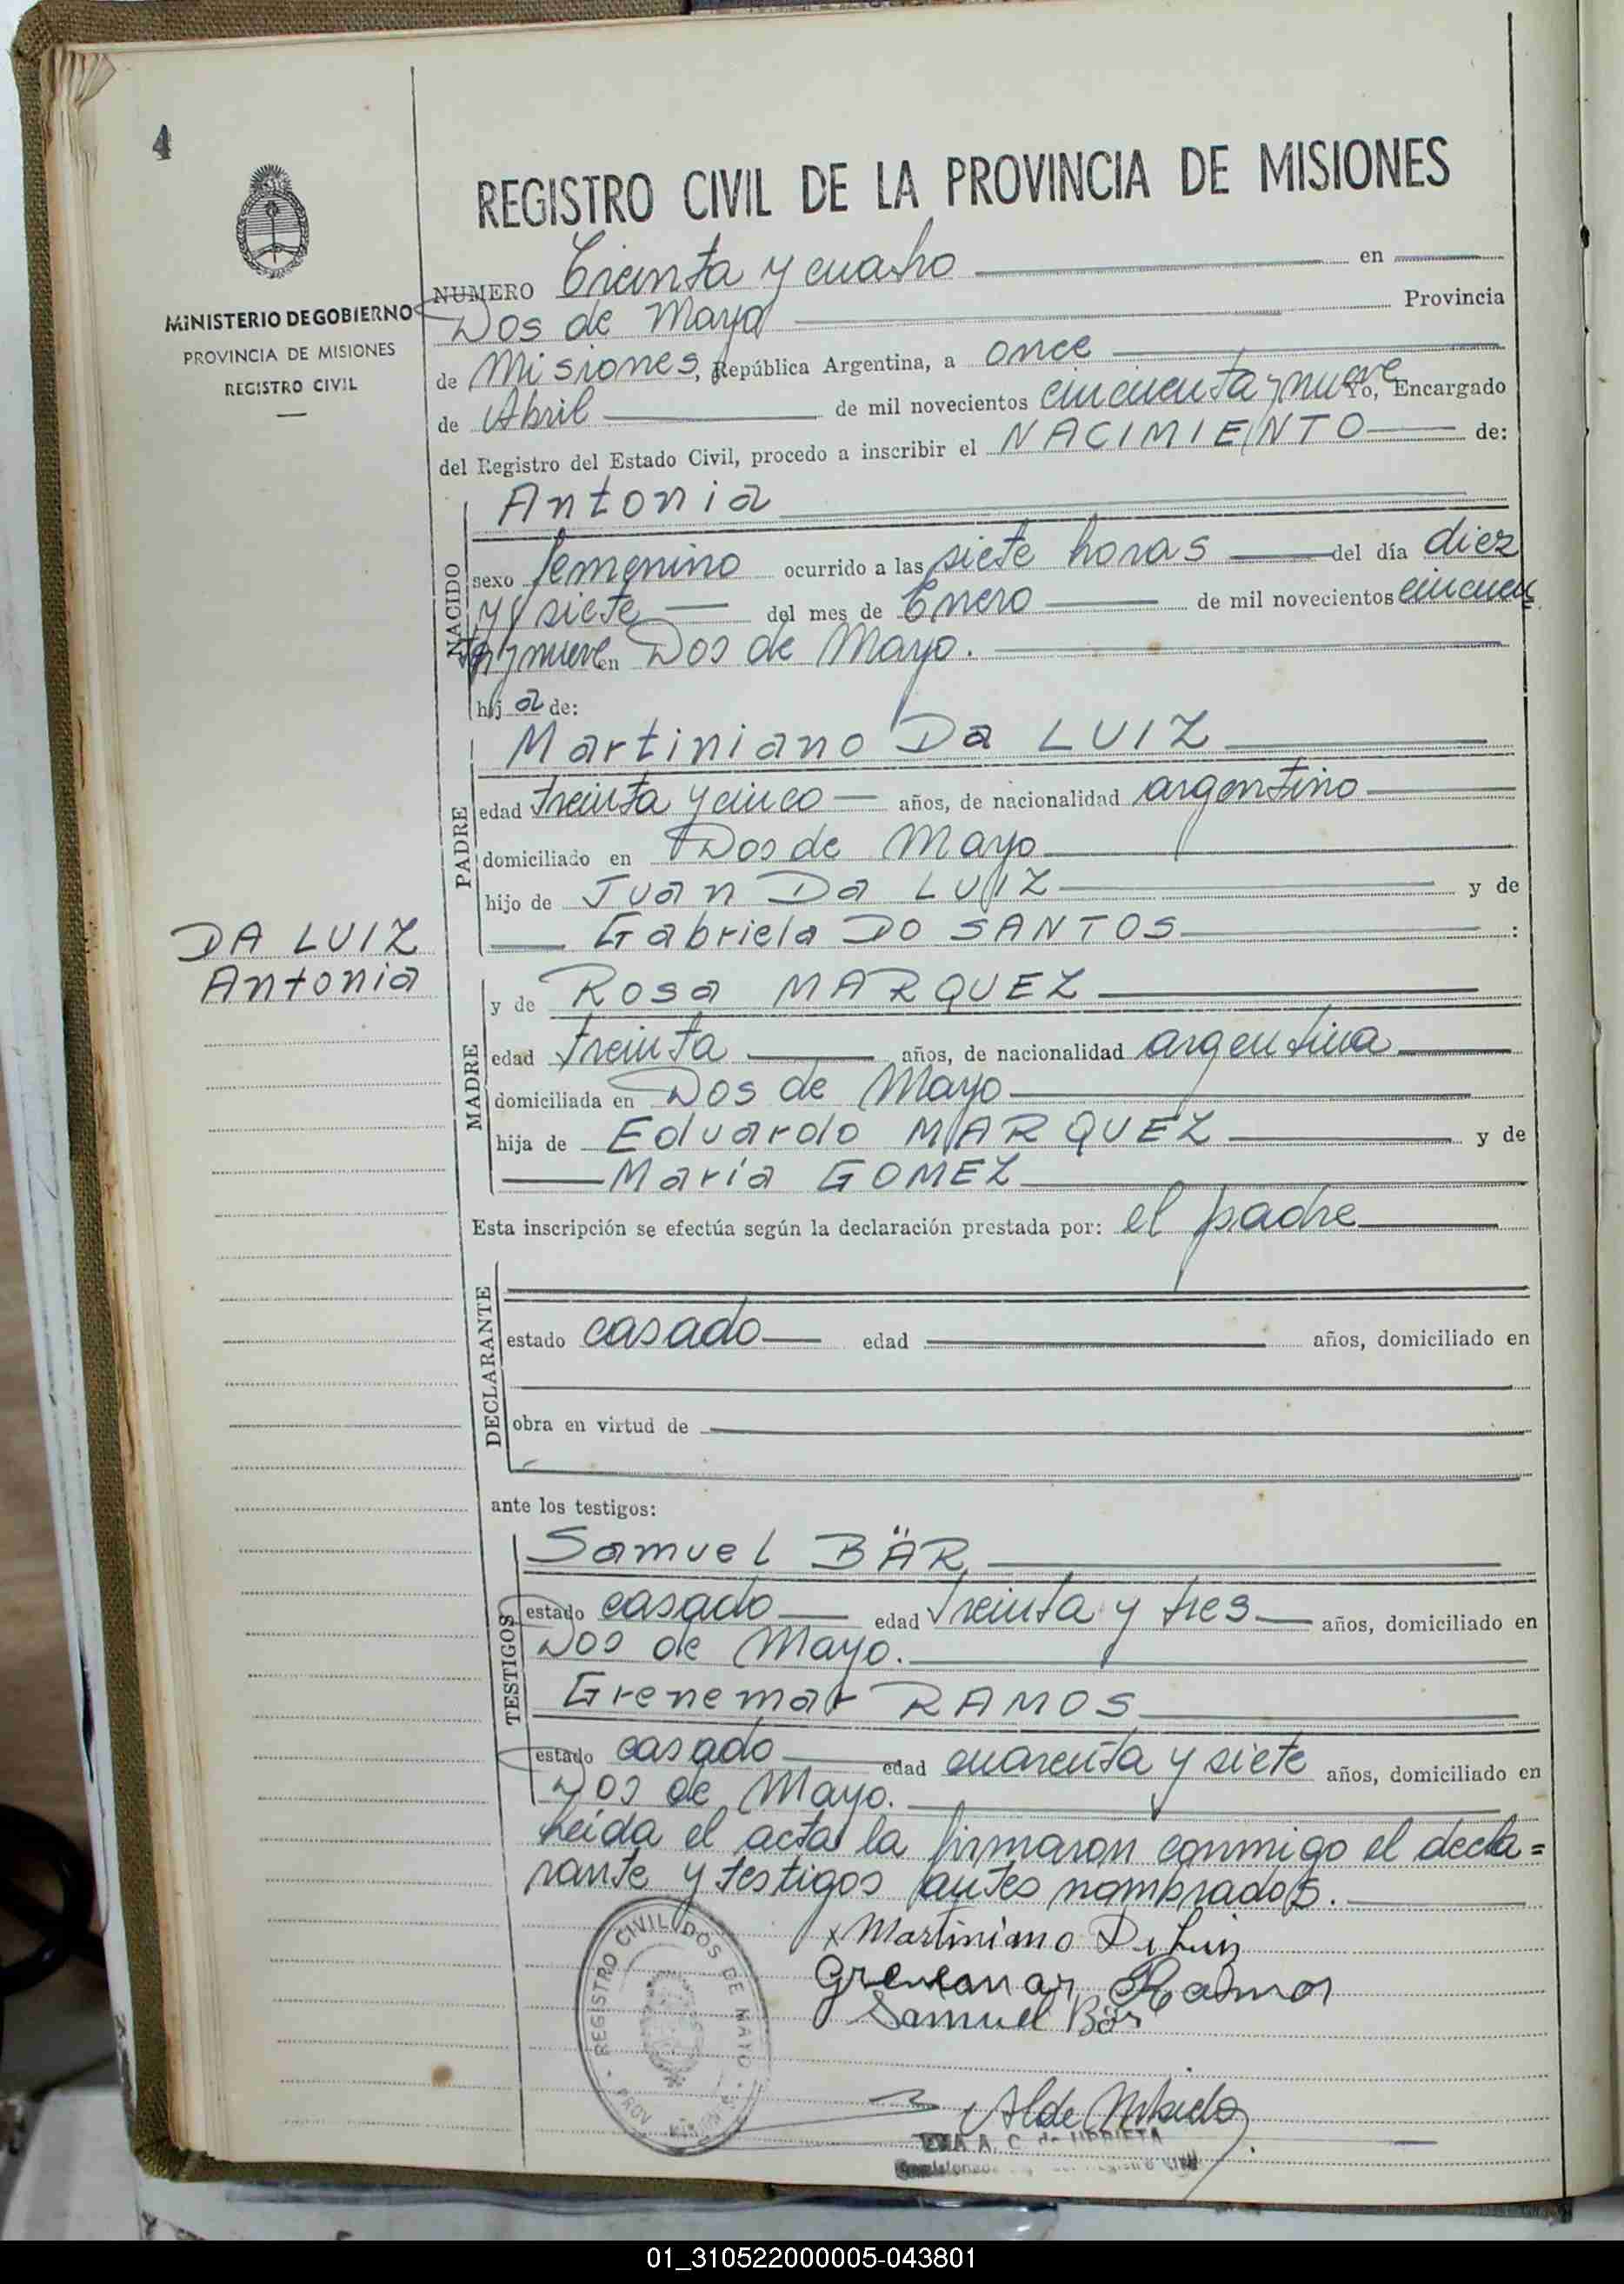 4
REGISTRO CIVIL DE LA PROVINCIA DE MISIONES
MINISTERIO DE GOBIERNO
PROVINCIA DE MISIONES
REGISTRO CIVIL
NUMERO Treinta y cuatro en
Dos de Mayo Provincia
de Misiones, República Argentina, a once
de Abril de mil novecientos cincuenta y nueve Yo, Encargado
del Registro del Estado Civil, procedo a inscribir el NACIMIENTO de:
NACIDO
Antonia
sexo femenino ocurrido a las siete horas del día diez
y siete del mes de Enero de mil novecientos cincuen
ta y nueve en Dos de Mayo.
hij a de:
PADRE
Martiniano Da LUIZ
edad treinta y cinco años, de nacionalidad argentino
domiciliado en Dos de Mayo
hijo de Juan Da LUIZ y de
Gabriela DO SANTOS :
DA LUIZ
Antonia
MADRE
y de Rosa MARQUEZ
edad treinta años, de nacionalidad argentina
domiciliada en Dos de Mayo
hija de Eduardo MARQUEZ y de
María GOMEZ
Esta inscripción se efectúa según la declaración prestada por: el padre
DECLARANTE
estado casado edad años, domiciliado en
obra en virtud de
ante los testigos:
TESTIGOS
Samuel BÄR
estado casado edad treinta y tres años, domiciliado en
Dos de Mayo.
Grenemar RAMOS
estado casado edad cuarenta y siete años, domiciliado en
Dos de Mayo.
Leida el acta la firmaron conmigo el decla=
rante y testigos antes nombrados.
x Martiniano Da Luiz
Grenemar Ramos
Samuel Bär
REGISTRO CIVIL DOS DE MAYO
PROV. MISIONES
A. C. de URRIETA
01_310522000005-043801